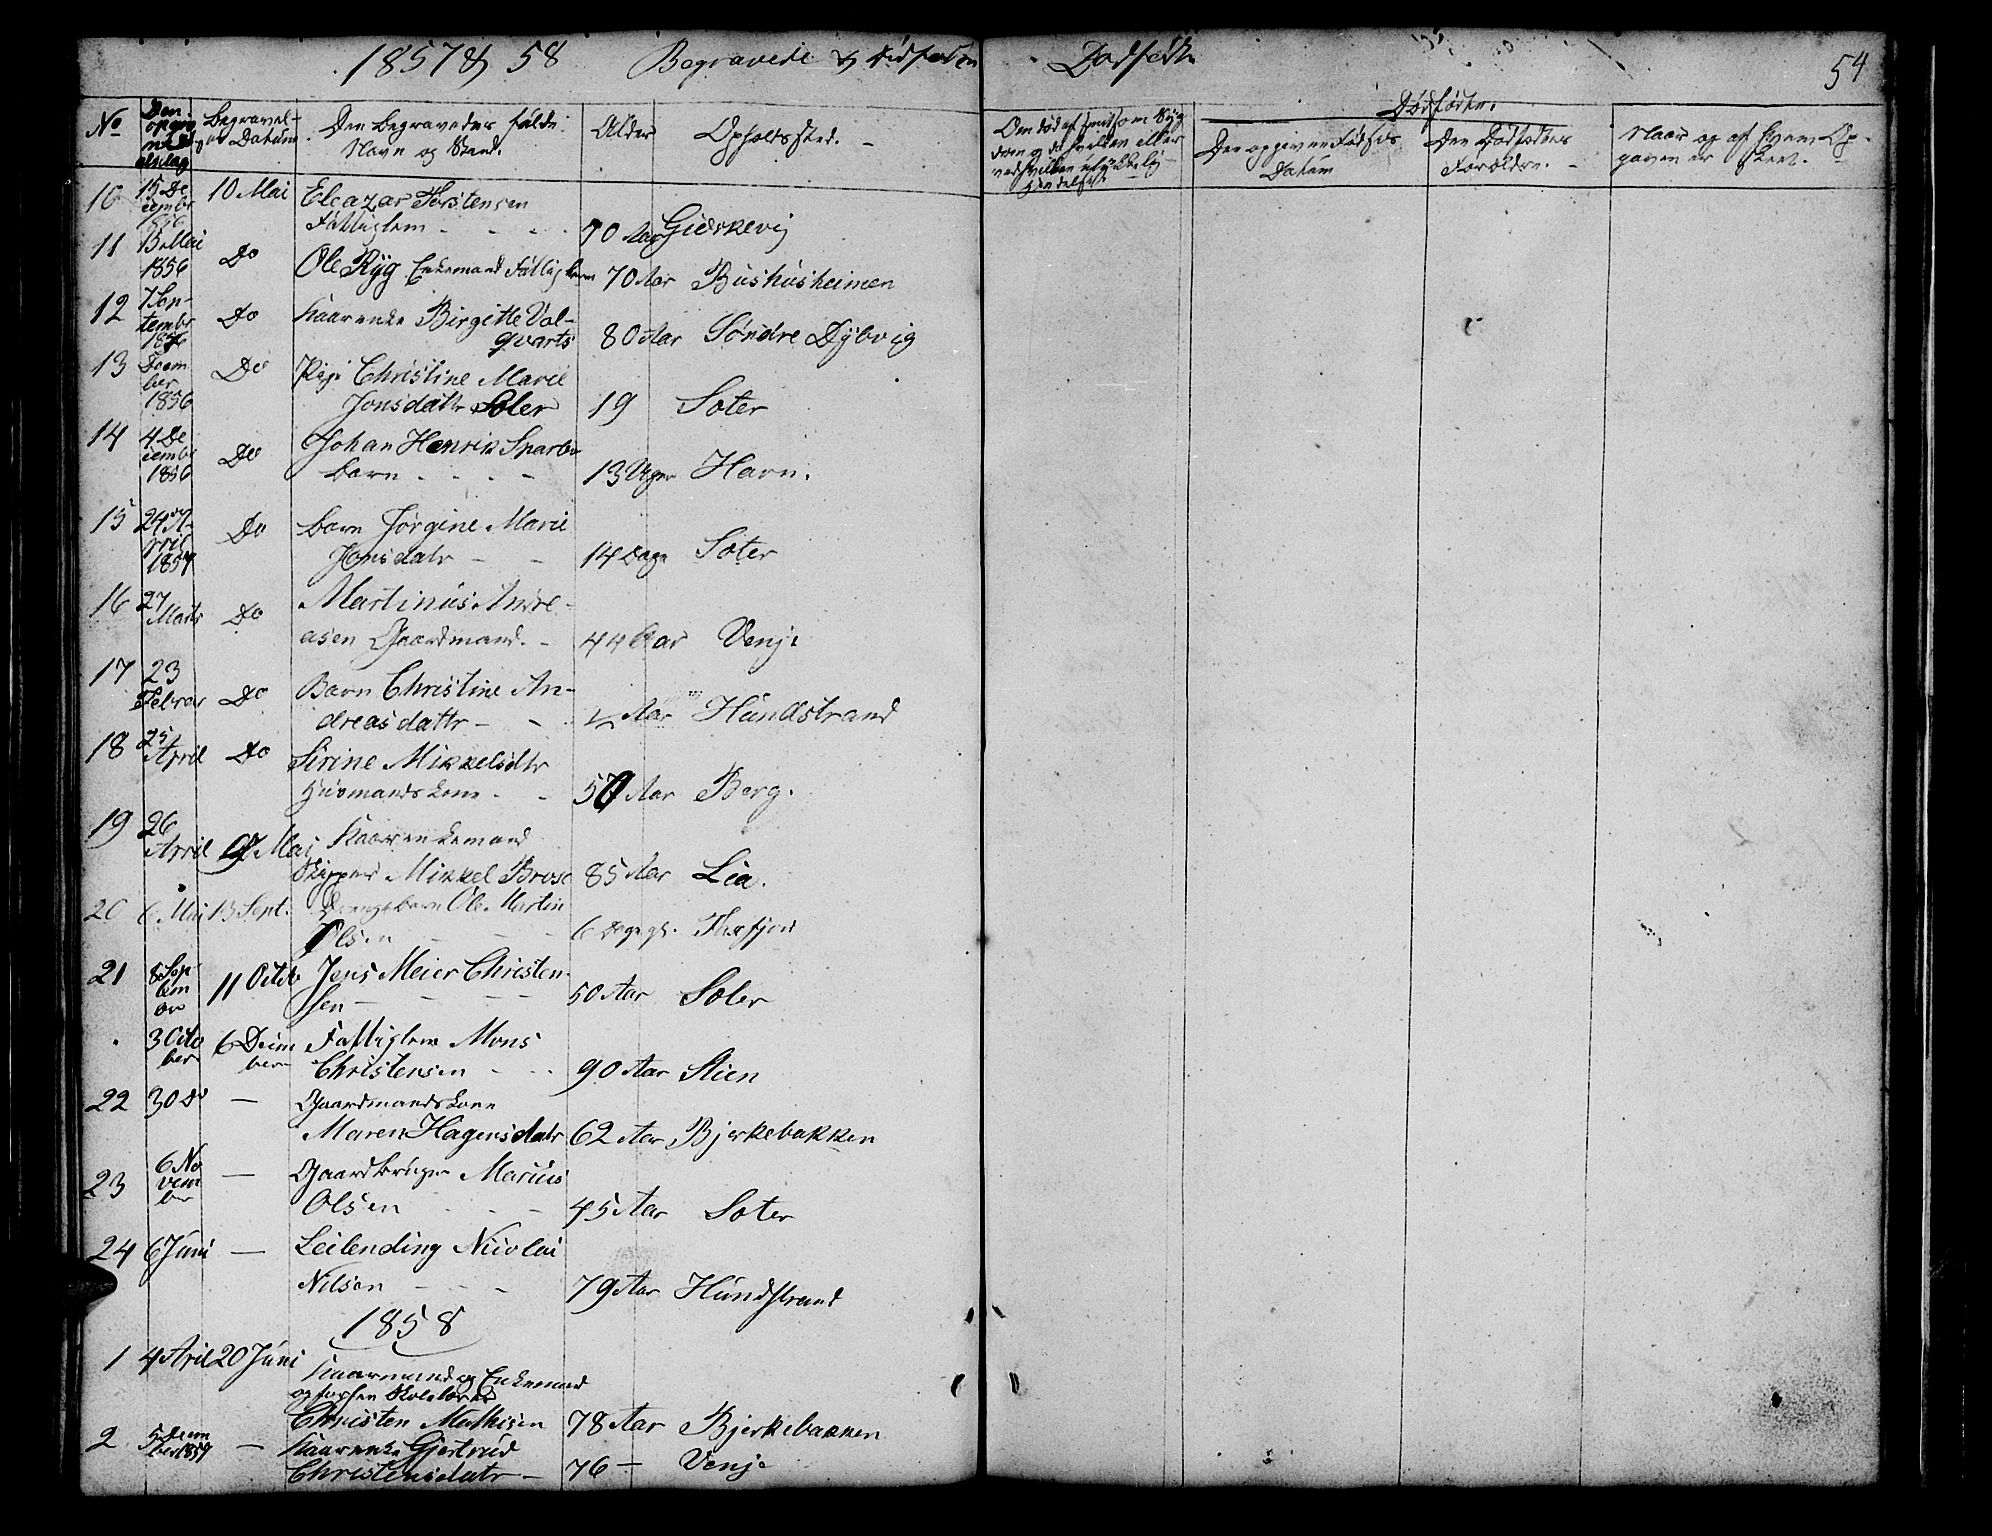 1857 & 58 Begravede & Dødfødte
Dødfødte
54
No
Begravelses Datum
Den Begravedes fulde Navn og Stand.
Alder
Opholdssted.
Dødfødte.
Den opgivne Fødsels Datum
Den Dødfødtes Forældre.
Naar og af hvem Opgaven er skeet.
10 15 December 1856 10 Mai Eleazar Torstensen
Fattiglem 70 Aar Gidskevig
11 Mai 1856 Do Ole Ryg Enkemand Fattiglem 70 Aar Bushusheimen
12 7 September 1856 Do Kaarenke Birgitte Vol-
qvarts 80 Aar Søndre Dybvig
13 December 1856 Do Pige Christine Marie
Jonsdattr Soter 19 Soter
14 4 December 1856 Do Johan Henrik
barn 13 Uger Havn.
15 24 April 1857 Do barn Jørgine Marie
Jonsdatr 14 Dage Soter
16 27 Marts Do Martinus Andre-
asen Gaardmand. 44 Aar Venje
17 23 Februar Do Barn Christine An-
dreasdattr ½ Aar Hundstrand
18 25 April Do Sirine Mikkelsdtr
Huusmandskone 57 Aar Berg.
19 26 April 9 Mai Kaarenkemand
Skipper Mikkel Brose 85 Aar Lia.
20 6 Mai 13 Sept. Drengebarn Ole Martin
Olsen 6 Dage gl.
21 8 September 11 Octob Jens Meier Christen-
sen 50 Aar Soter
3 October 6 December Fattiglem Mons
Christensen 90 Aar Stien
22 30 Do — Gaardmandskone
Maren Hagensdatr 62 Aar Bjerkebakken
23 6 November — Gaardbruger Marius
Olsen 45 Aar Soter
24 6 Juni — Leilending Nicolai
Nilsen 79 Aar Hundstrand
1858
1 4 Aril 20 Juni Kaarmand og Enkemand
og Skolelærer
Christen Mathisen 78 Aar Bjerkebakken
2 5 December 1857 — Kaarenke Gjertrud
Christensdatr 76 — Venje